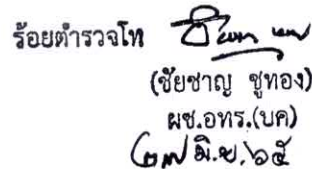 ร้อยตำรวจโท
(ชัยชาญ ชูทอง)
ผช.อทร.(บค)
๒๗ มิ.ย. ๖๕